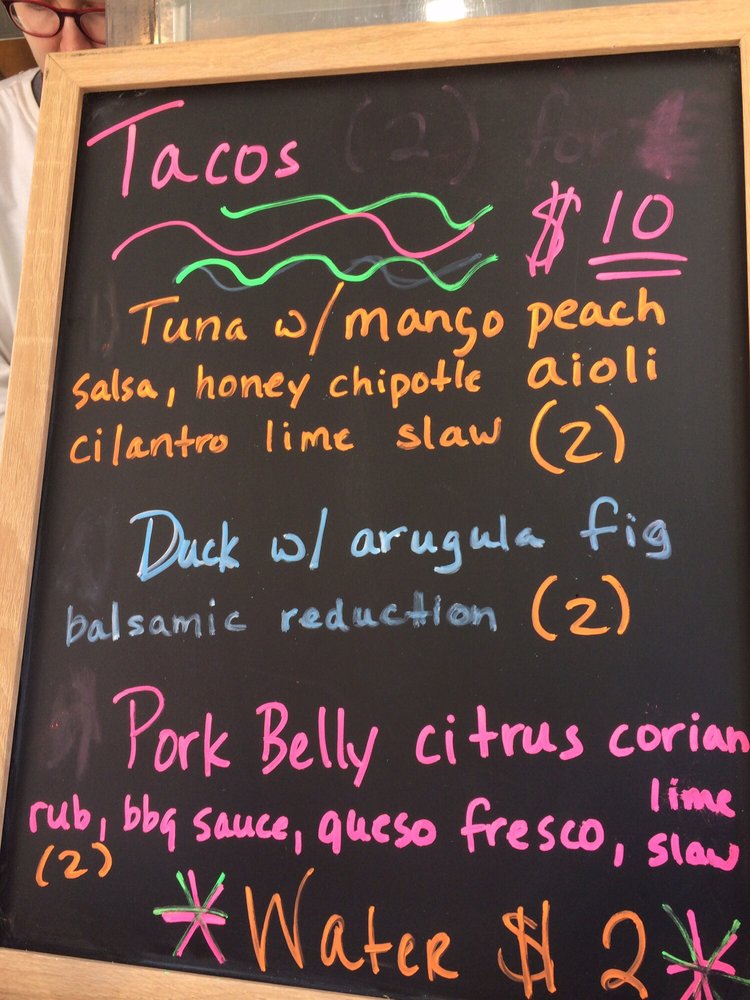 Tacos (2) for
$10
Tuna w/ mango peach
salsa, honey chipotle aioli
cilantro lime slaw (2)
Duck w/ arugula fig
balsamic reduction (2)
Pork Belly citrus corian
rub, bbq sauce, queso fresco, lime slaw
(2)
*Water $2*